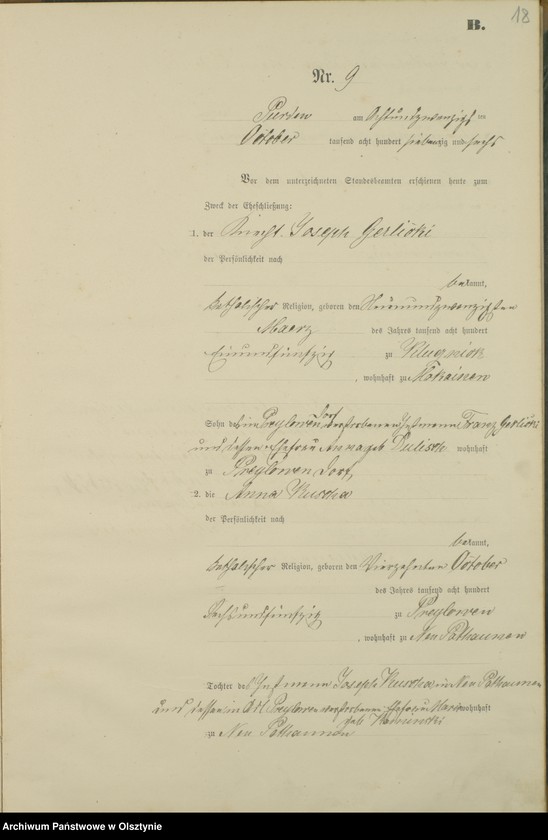 18
B.
Nr. 9
Purden am Achtundzwanzigsten
October tausend acht hundert siebenzig und sechs
Vor dem unterzeichneten Standesbeamten erschienen heute zum
Zweck der Eheschließung:
1. der Knecht Joseph Gerlicki
der Persönlichkeit nach
bekannt,
katholischer Religion, geboren den Neunundzwanzigsten
Maerz des Jahres tausend acht hundert
Einundfünfzig zu
, wohnhaft zu
Sohn des in Preylowen Dorf verstorbenen Franz Gerlicki
und dessen Ehefrau Anna geb wohnhaft
zu Preylowen Dorf,
2. die Anna Kuscha
der Persönlichkeit nach
bekannt,
katholischer Religion, geboren den Vierzehnten October
des Jahres tausend acht hundert
Sechsundfünfzig zu Preylowen
, wohnhaft zu Neu Pathaunen
Tochter des Joseph Kuscha in Neu Pathaunen
und dessen in Preylowen verstorbenen Ehefrau wohnhaft
geb
zu Neu Pathaunen
Archiwum Państwowe w Olsztynie